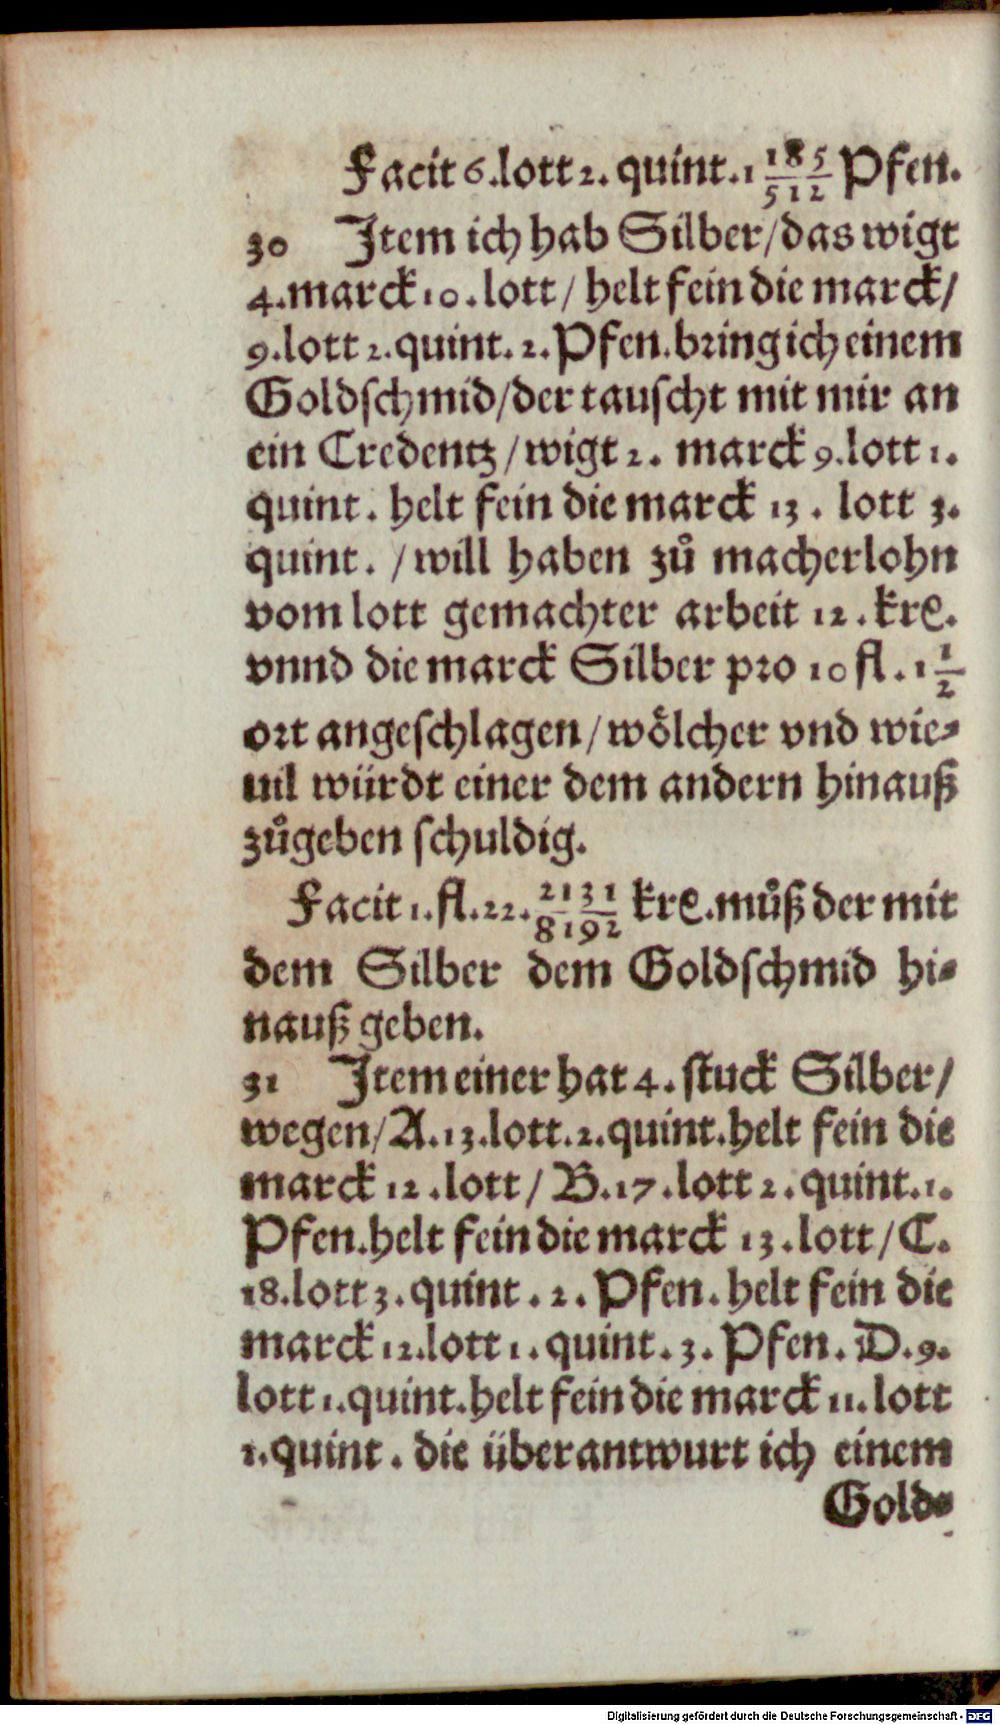 Facit 6.lott 2. quint.1 185/512 Pfen.
30 Item ich hab Silber/das wigt
4.marck 10.lott/ helt fein die marck/
9.lott 2.quint.2.Pfen.bring ich einem
Goldschmid/der tauscht mit mir an
ein Credentz/wigt 2. marck 9.lott 1.
quint. helt fein die marck 13. lott 3.
quint. /will haben zů macherlohn
vom lott gemachter arbeit 12.kre.
vnnd die marck Silber pro 10 fl. 1 1/2
ort angeschlagen/wo̊lcher vnd wie-
uil würdt einer dem andern hinauß
zůgeben schuldig.
Facit 1.fl.22. 2131/8192 kre.můß der mit
dem Silber dem Goldschmid hi-
nauß geben.
31 Item einer hat 4. stuck Silber/
wegen/A.13.lott.2.quint.helt fein die
marck 12.lott/B.17.lott 2.quint.1.
Pfen.helt fein die marck 13.lott/C.
18.lott 3.quint.2.Pfen.helt fein die
marck 12.lott 1.quint.3.Pfen.D.9.
lott 1.quint.helt fein die marck 11.lott
1.quint. die überantwurt ich einem
Gold-
Digitalisierung gefördert durch die Deutsche Forschungsgemeinschaft - DFG